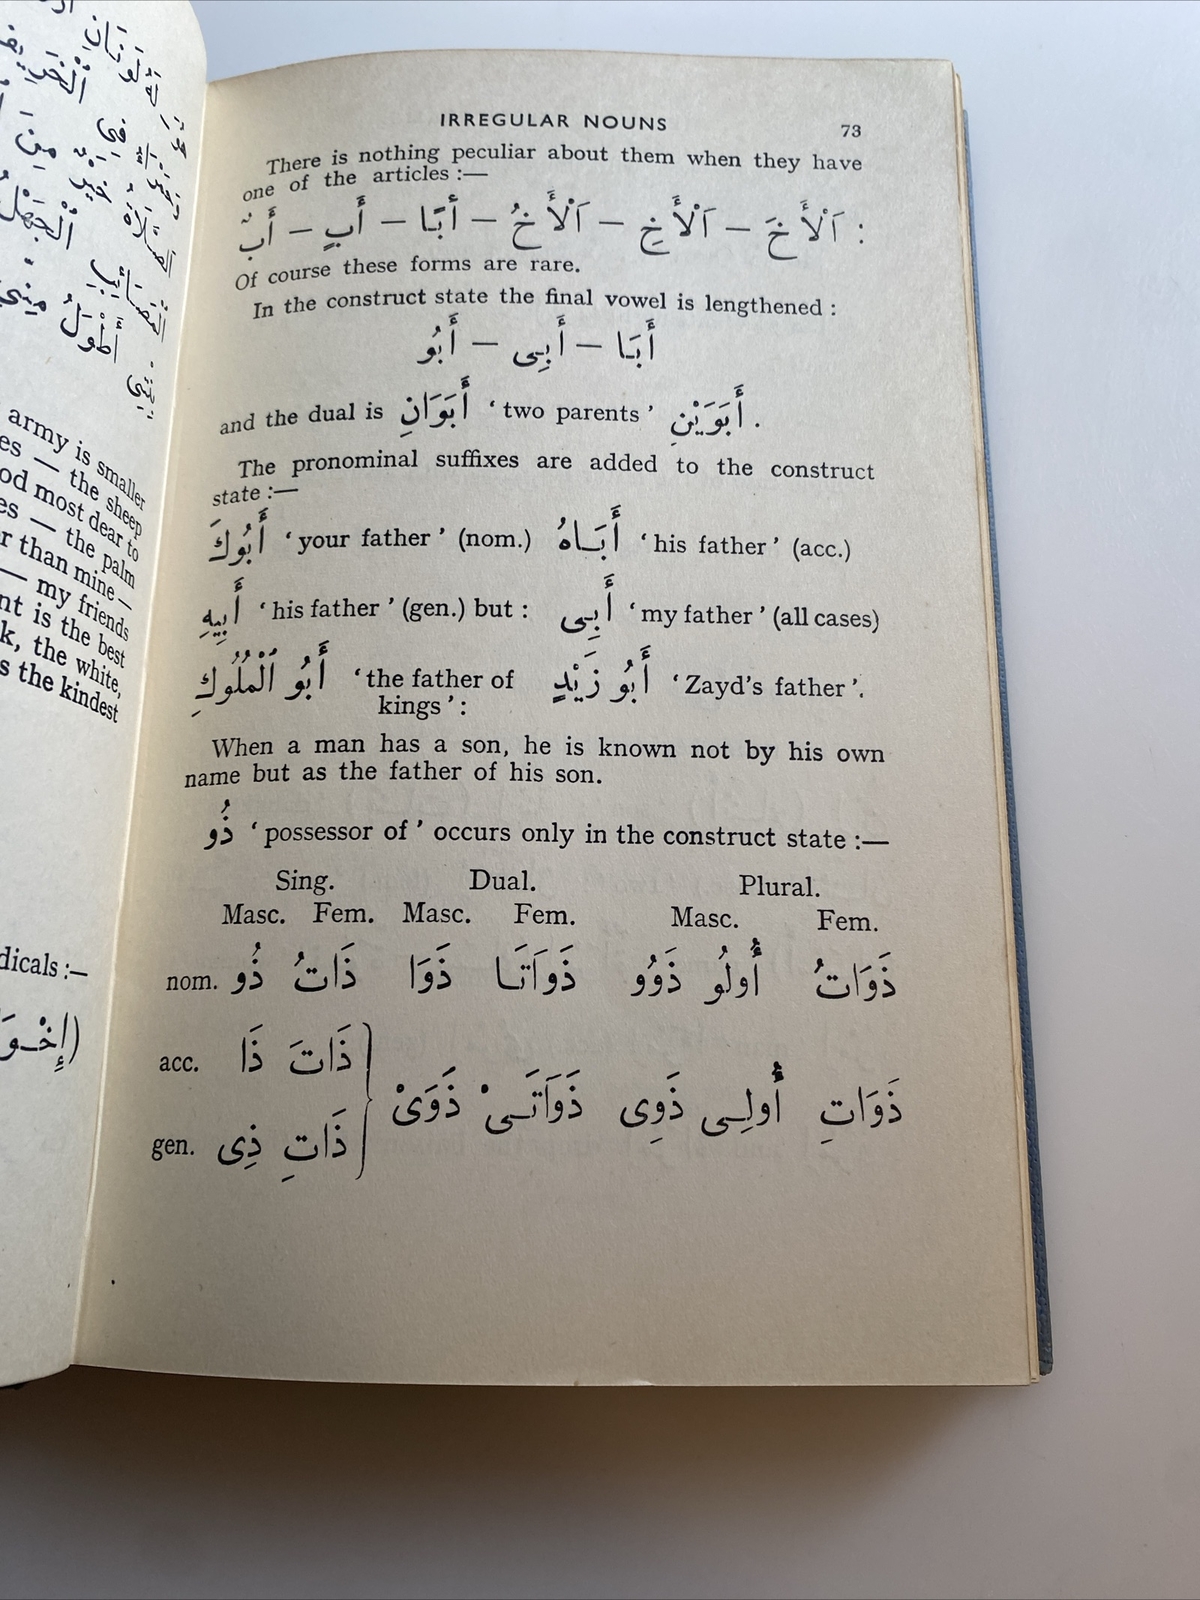 هُوَ لَهُ لَوْنَانِ
فِي ٱلْخَرِيفِ
ٱلصَّلَاةُ خَيْرٌ مِنَ
ٱلْمَصَائِبِ ٱلْجَهْلُ
أَطْوَلُ مِنْ
بِنْتِي
army is smaller
es — the sheep
od most dear to
es — the palm
r than mine —
— my friends
nt is the best
k, the white,
s the kindest
dicals :—
(إِخْوَ
IRREGULAR NOUNS 73
There is nothing peculiar about them when they have
one of the articles :—
أَبٌ — أَبٍ — أَبًا — اَلْأَخُ — اَلْأَخِ — اَلْأَخَ :
Of course these forms are rare.
In the construct state the final vowel is lengthened :
أَبُو — أَبِى — أَبَا
and the dual is أَبَوَانِ ‘ two parents ’ أَبَوَيْنِ .
The pronominal suffixes are added to the construct
state :—
أَبُوكَ ‘ your father ’ (nom.) أَبَاهُ ‘ his father ’ (acc.)
أَبِيهِ ‘ his father ’ (gen.) but : أَبِى ‘ my father ’ (all cases)
أَبُو ٱلْمُلُوكِ ‘ the father of أَبُو زَيْدٍ ‘ Zayd’s father ’.
kings ’ :
When a man has a son, he is known not by his own
name but as the father of his son.
ذُو ‘ possessor of ’ occurs only in the construct state :—
Sing. Dual. Plural.
Masc. Fem. Masc. Fem. Masc. Fem.
nom. ذُو ذَاتُ ذَوَا ذَوَاتَا ذَوُو أُولُو ذَوَاتُ
acc. ذَا ذَاتَ
ذَوَىْ ذَوَاتَىْ ذَوِى أُولِى ذَوَاتِ
gen. ذِى ذَاتِ